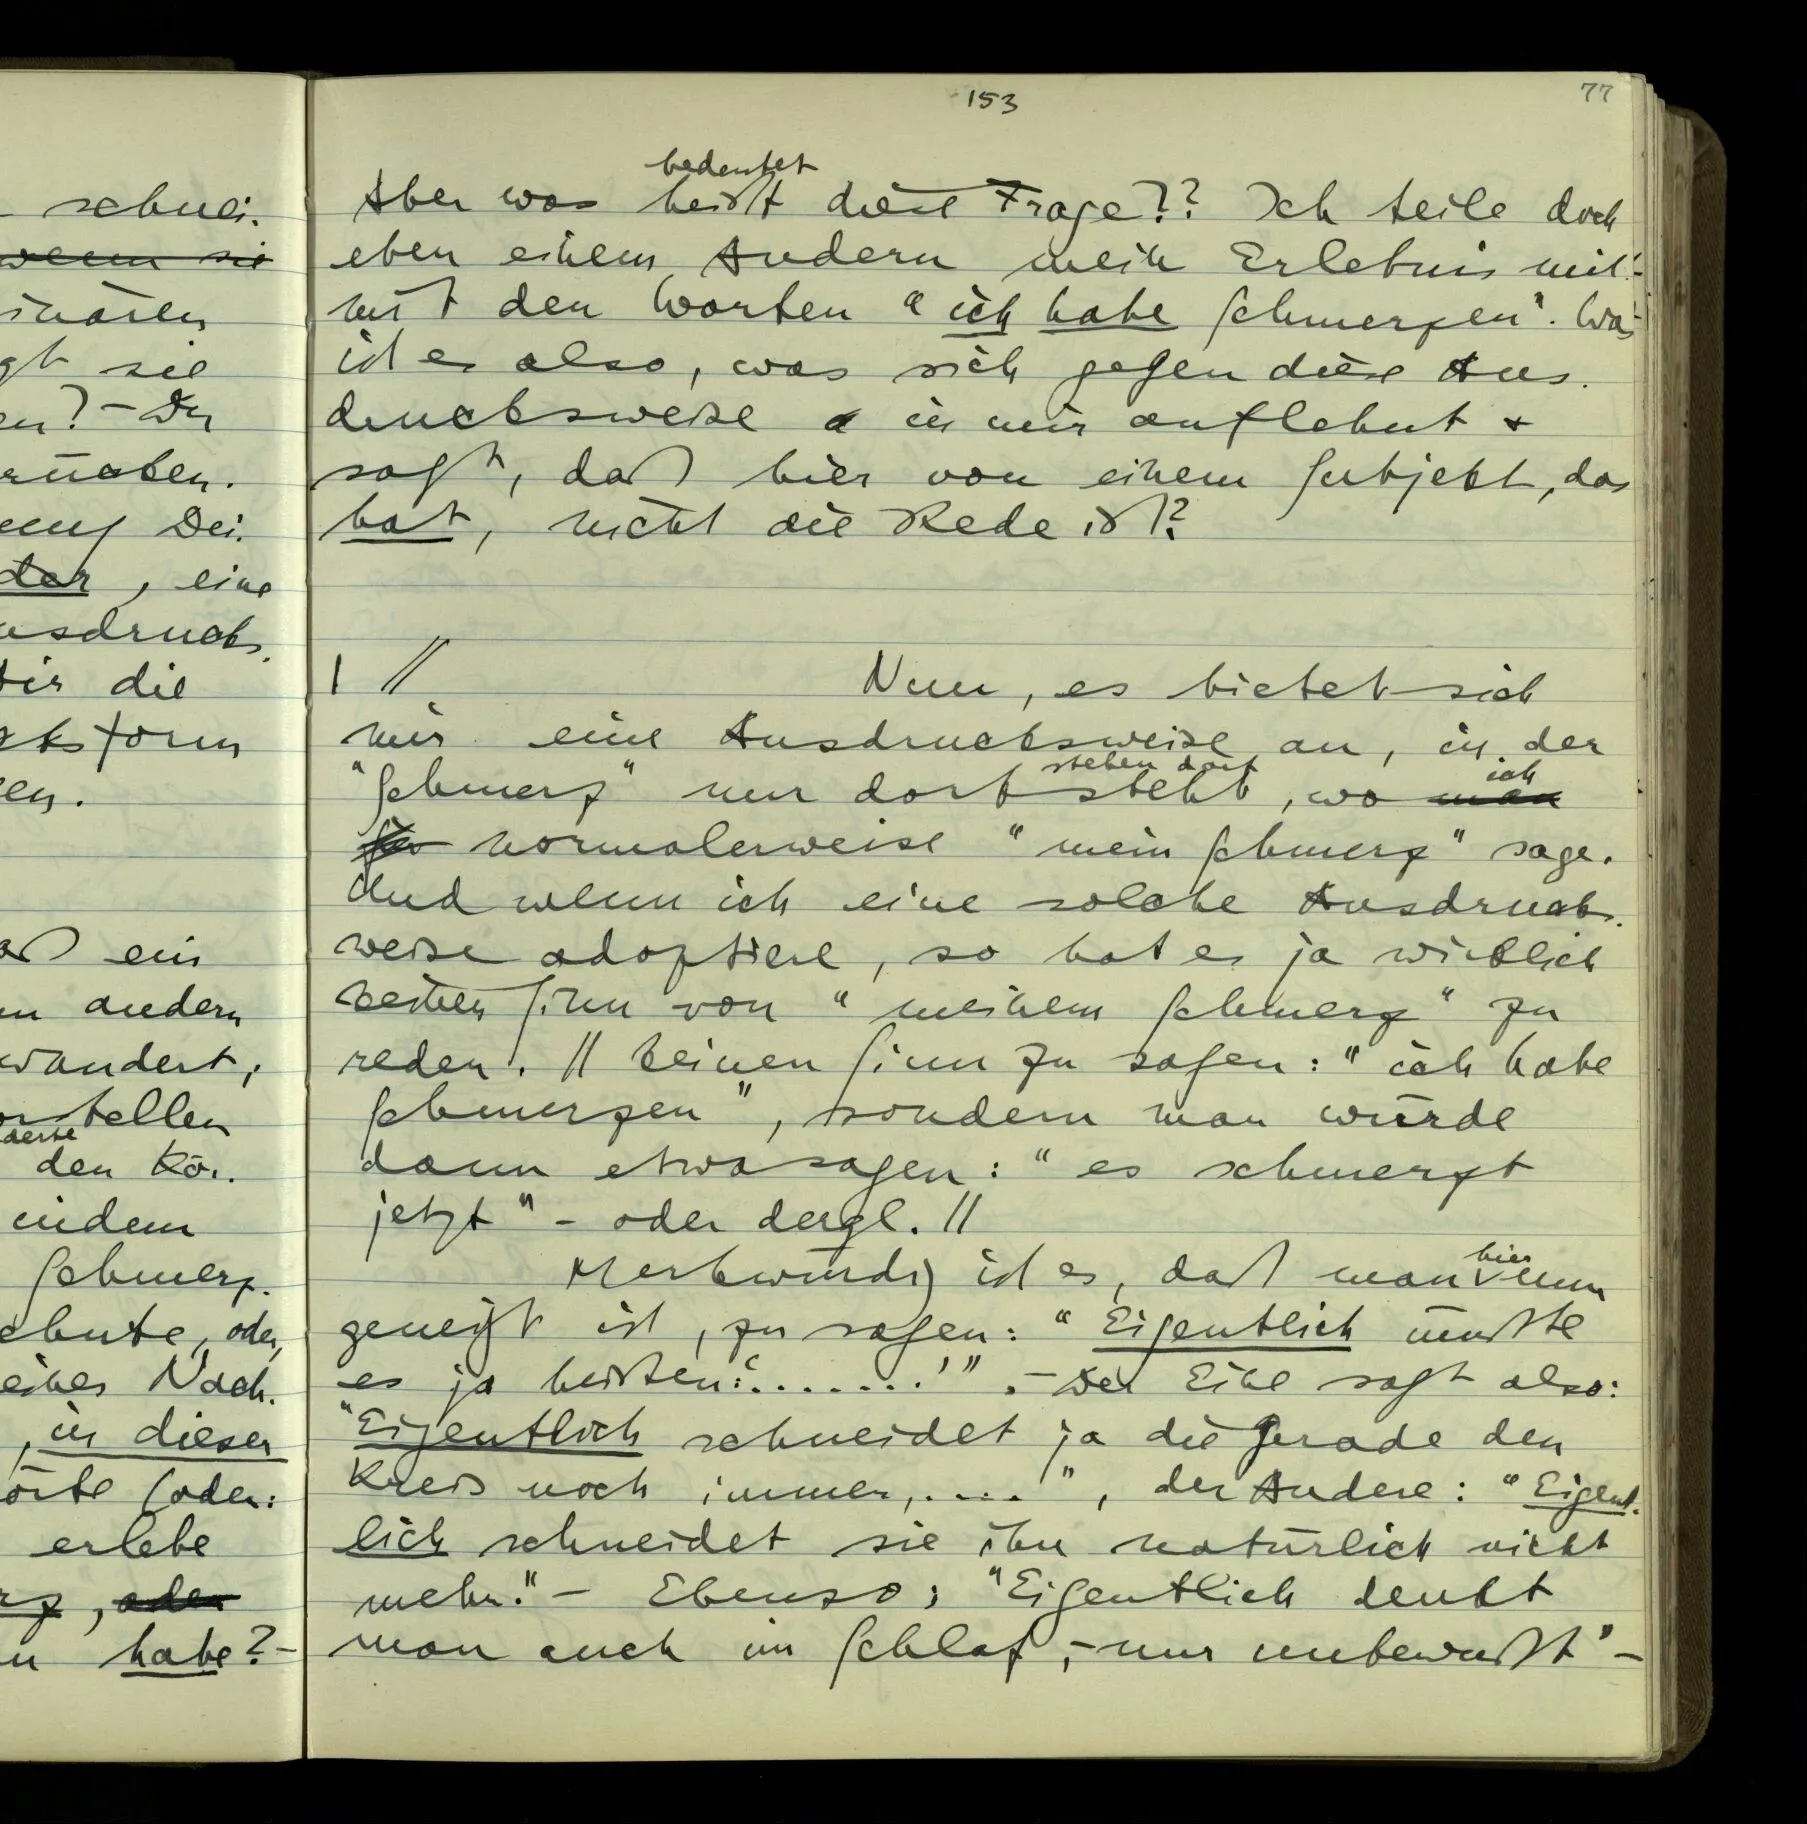 - schnei-
wenn sie
inären
gt sie
en? – Du
rüben.
ung Dei-
der, eine
usdrucks-
Dir die
ksform
en.
aß ein
m andern
wandert,
orstellen
den Kör-
indem
Schmerz-
ehnte, oder,
eines Nach-
, in dieser
örte (oder:
erlebe
rz, oder
n habe? –
153
77
bedeutet
Aber was heißt diese Frage?? Ich teile doch
eben einem Andern mein Erlebnis mit –
mit den Worten “ich habe Schmerzen”. Was
ist es also, was sich gegen diese Aus-
drucksweise in mir auflehnt +
sagt, daß hier von einem Subjekt, das
hat, nicht die Rede ist?
| // Nun, es bietet sich
mir eine Ausdrucksweise an, in der
stehen darf
ich
“Schmerz” nur dort steht, wo man
normalerweise “mein Schmerz” sage.
Und wenn ich eine solche Ausdrucks-
weise adoptiere, so hat es ja wirklich
keinen Sinn von “meinem Schmerz” zu
reden. // keinen Sinn zu sagen: “ich habe
Schmerzen”, sondern man würde
dann etwa sagen: “es schmerzt
jetzt” – oder dergl. //
hier
Merkwürdig ist es, daß man nun
geneigt ist, zu sagen: “Eigentlich müßte
es ja heißen: ‘.......’”. – Der Eine sagt also:
“Eigentlich schneidet ja die Gerade den
Kreis noch immer, ....”, der Andere: “Eigent-
lich schneidet sie ihn natürlich nicht
mehr.” – Ebenso: “Eigentlich denkt
man auch im Schlaf, – nur unbewußt” –